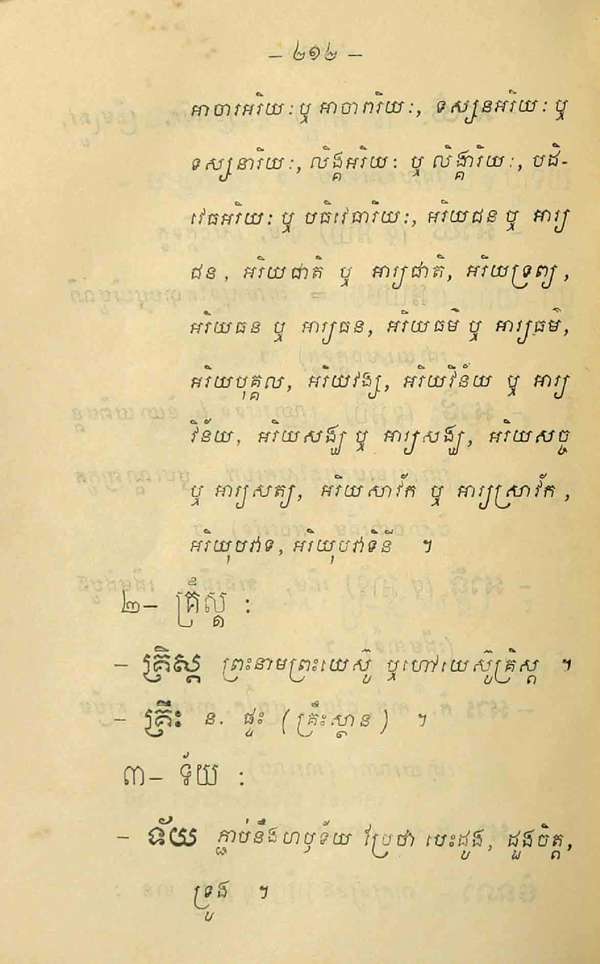 – ២១២ –
អាចារអរិយៈ ឬ អាចារារិយៈ, ទស្សនអរិយៈ ឬ
ទស្សនារិយៈ, លិង្គអរិយៈ ឬ លិង្គារិយៈ, បដិ-
វេធអរិយៈ ឬ បដិវេធារិយៈ, អរិយជន ឬ អារ្យ
ជន, អរិយជាតិ ឬ អារ្យជាតិ, អរិយទ្រព្យ,
អរិយធន ឬ អារ្យធន, អរិយធម៌ ឬ អារ្យធម៌,
អរិយបុគ្គល, អរិយវង្ស, អរិយវិន័យ ឬ អារ្យ
វិន័យ, អរិយសង្ឃ ឬ អារ្យសង្ឃ, អរិយសច្ច
ឬ អារ្យសត្យ, អរិយសាវ័ក ឬ អារ្យស្រាវ័ក,
អរិយុបវាទ, អរិយុបវាទិនី ។
២– គ្រឹស្ត :
– គ្រិស្ត ព្រះនាមព្រះយេស៊ូ ឬហៅយេស៊ូគ្រិស្ត ។
– គ្រឹះ ន. ផ្ទះ (គ្រឹះស្ថាន) ។
៣– ទ័យ :
– ទ័យ ភ្ជាប់នឹងហឫទ័យ ប្រែថា បេះដូង, ដួងចិត្ត,
ទ្រូង ។